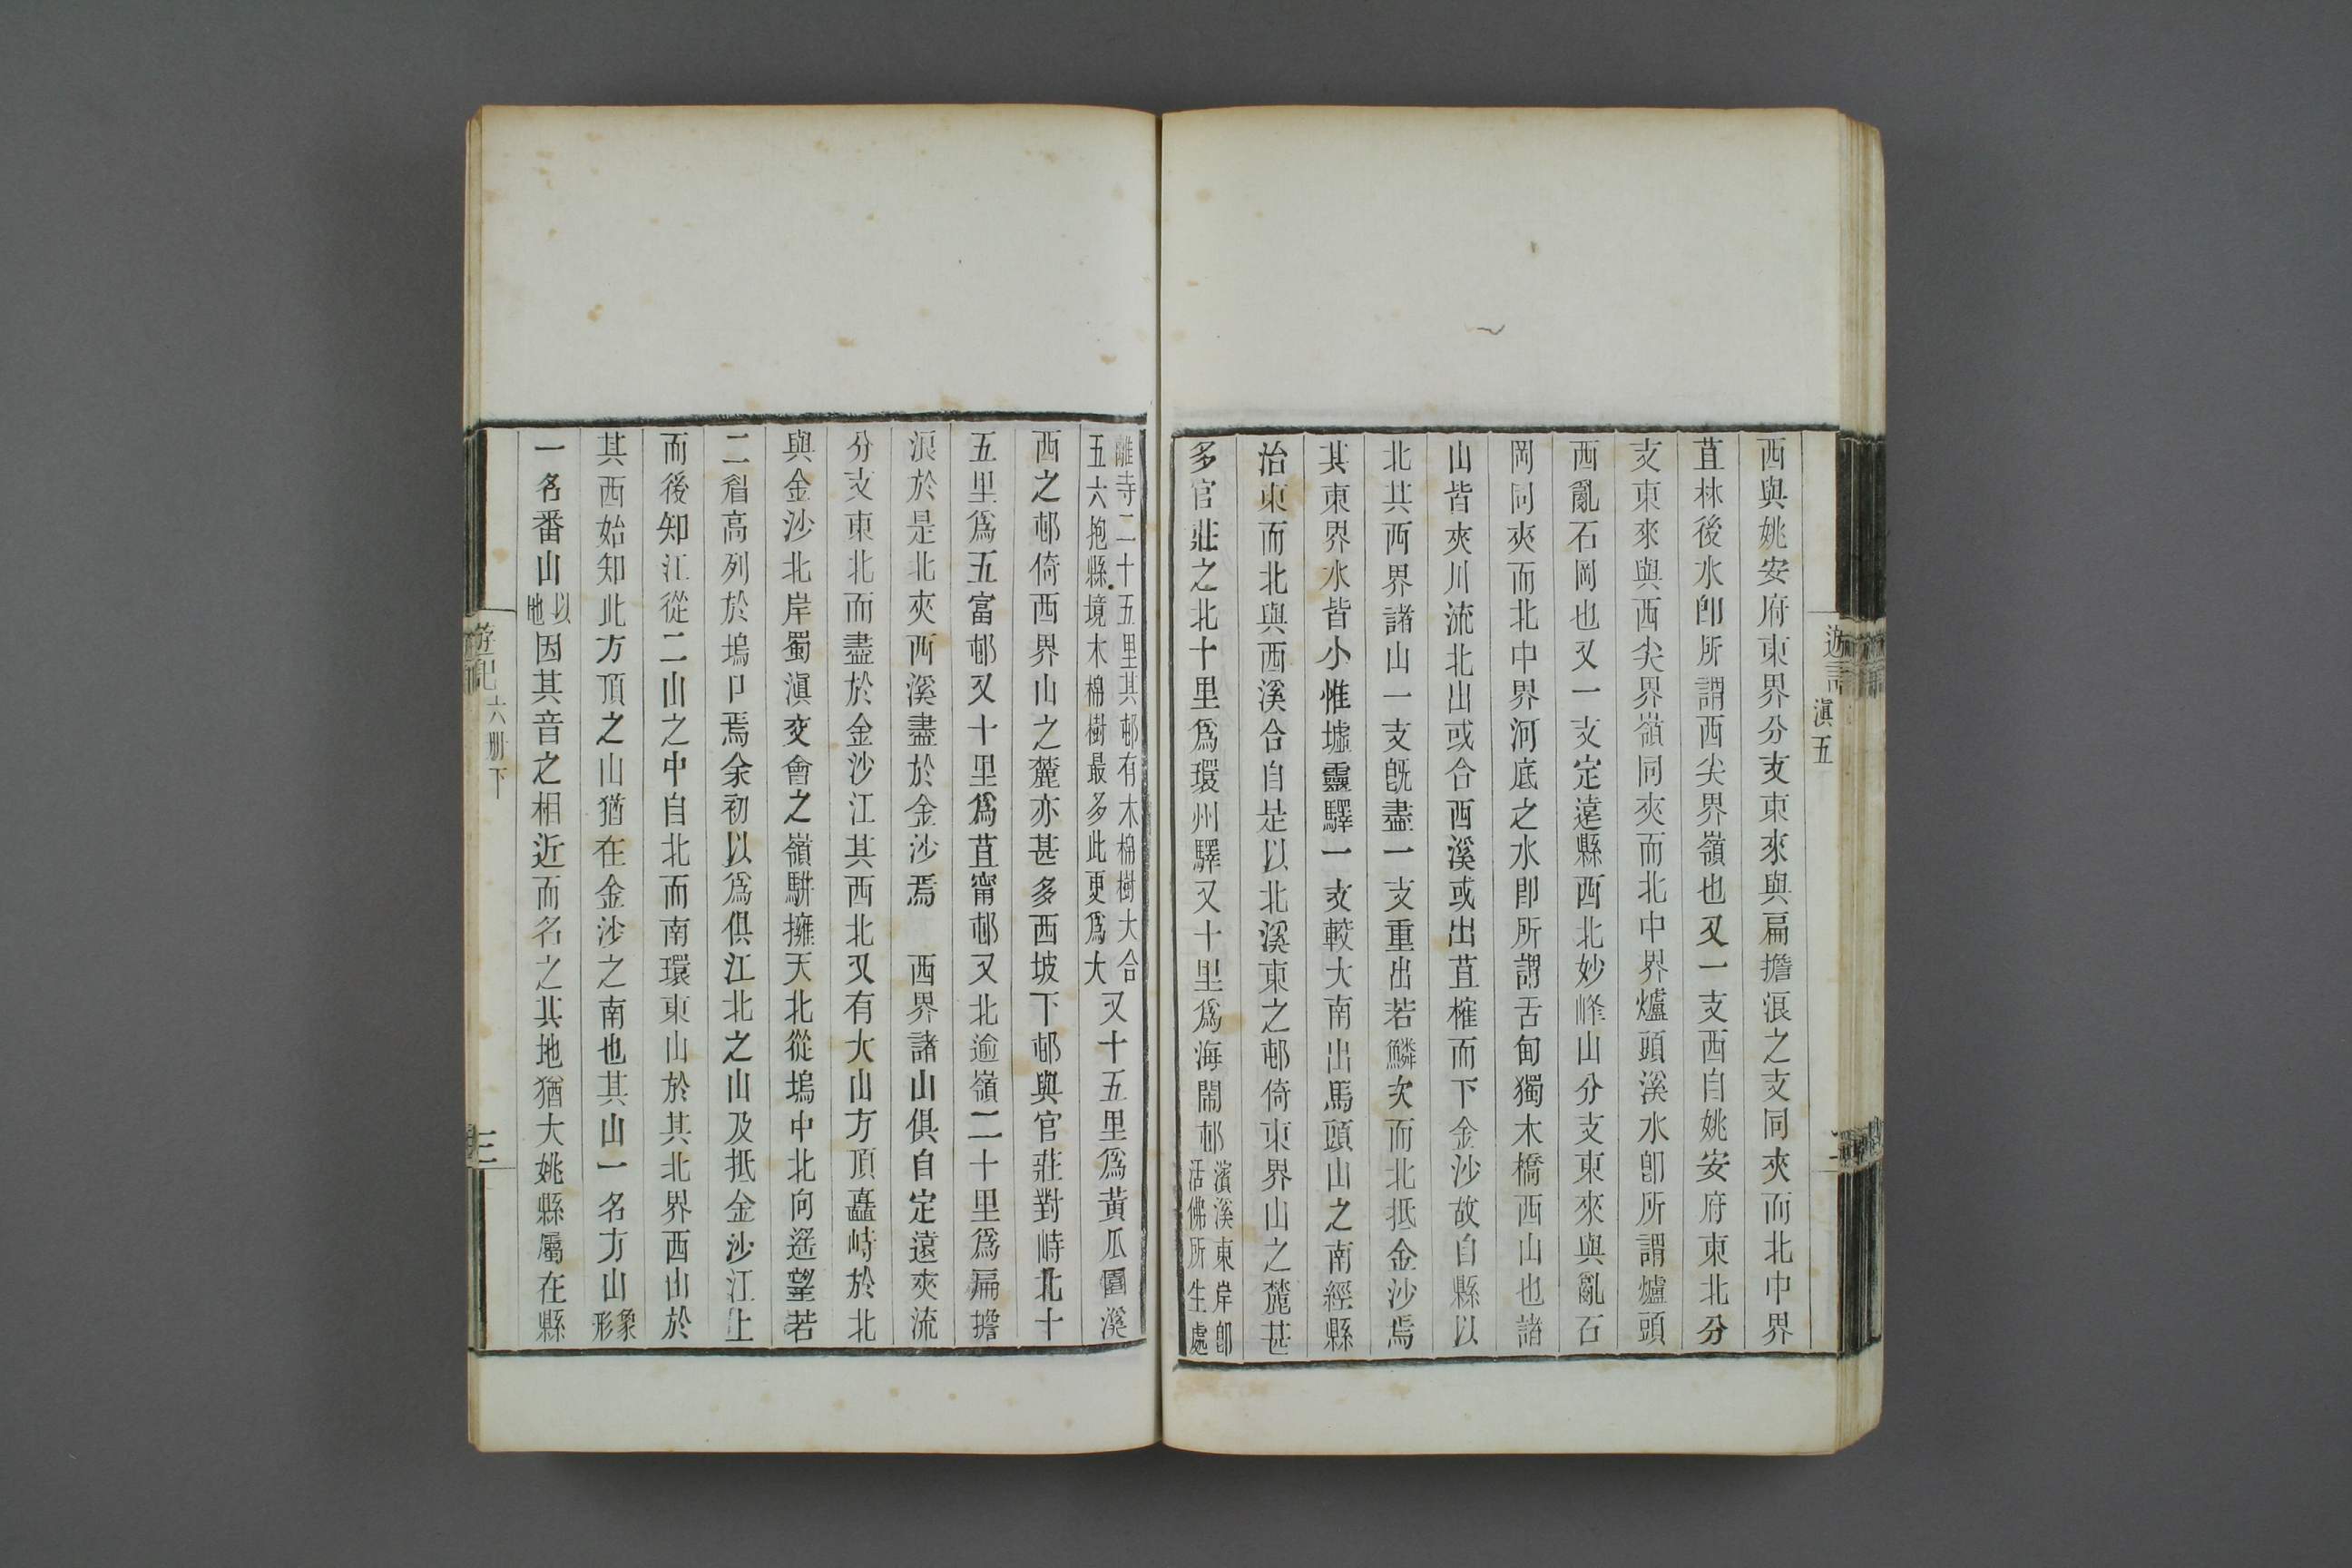 遊記
滇五
西與姚安府東界分支東來與扁擔浪之支同夾而北中界
苴林後水卽所謂西尖界嶺也又一支西自姚安府東北分
支東來與西尖界嶺同夾而北中界爐頭溪水卽所謂爐頭
西亂石岡也又一支定遠縣西北妙峰山分支東來與亂石
岡同夾而北中界河底之水卽所謂舌甸獨木橋西山也諸
山皆夾川流北出或合西溪或出苴榷而下金沙故自縣以
北其西界諸山一支旣盡一支重出若鱗次而北抵金沙焉
其東界水皆小惟墟靈驛一支較大南出馬頭山之南經縣
治東而北與西溪合自是以北溪東之邨倚東界山之麓甚
多官莊之北十里爲環州驛又十里爲海閙邨濱溪東岸卽
活佛所生處
離寺二十五里其邨有木棉樹大合
五六抱縣境木棉樹最多此更爲大又十五里爲黃瓜園溪
西之邨倚西界山之麓亦甚多西坡下邨與官莊對峙北十
五里爲五富邨又十里爲苴甯邨又北逾嶺二十里爲扁擔
浪於是北夾西溪盡於金沙焉　西界諸山俱自定遠夾流
分支東北而盡於金沙江其西北又有大山方頂矗峙於北
與金沙北岸蜀滇交會之嶺駢擁天北從塢中北向遙望若
二眉高列於塢口焉余初以爲俱江北之山及抵金沙江上
而後知江從二山之中自北而南環東山於其北界西山於
其西始知此方頂之山猶在金沙之南也其山一名方山象
形
一名番山以
地因其音之相近而名之其地猶大姚縣屬在縣
遊記
六册下
三